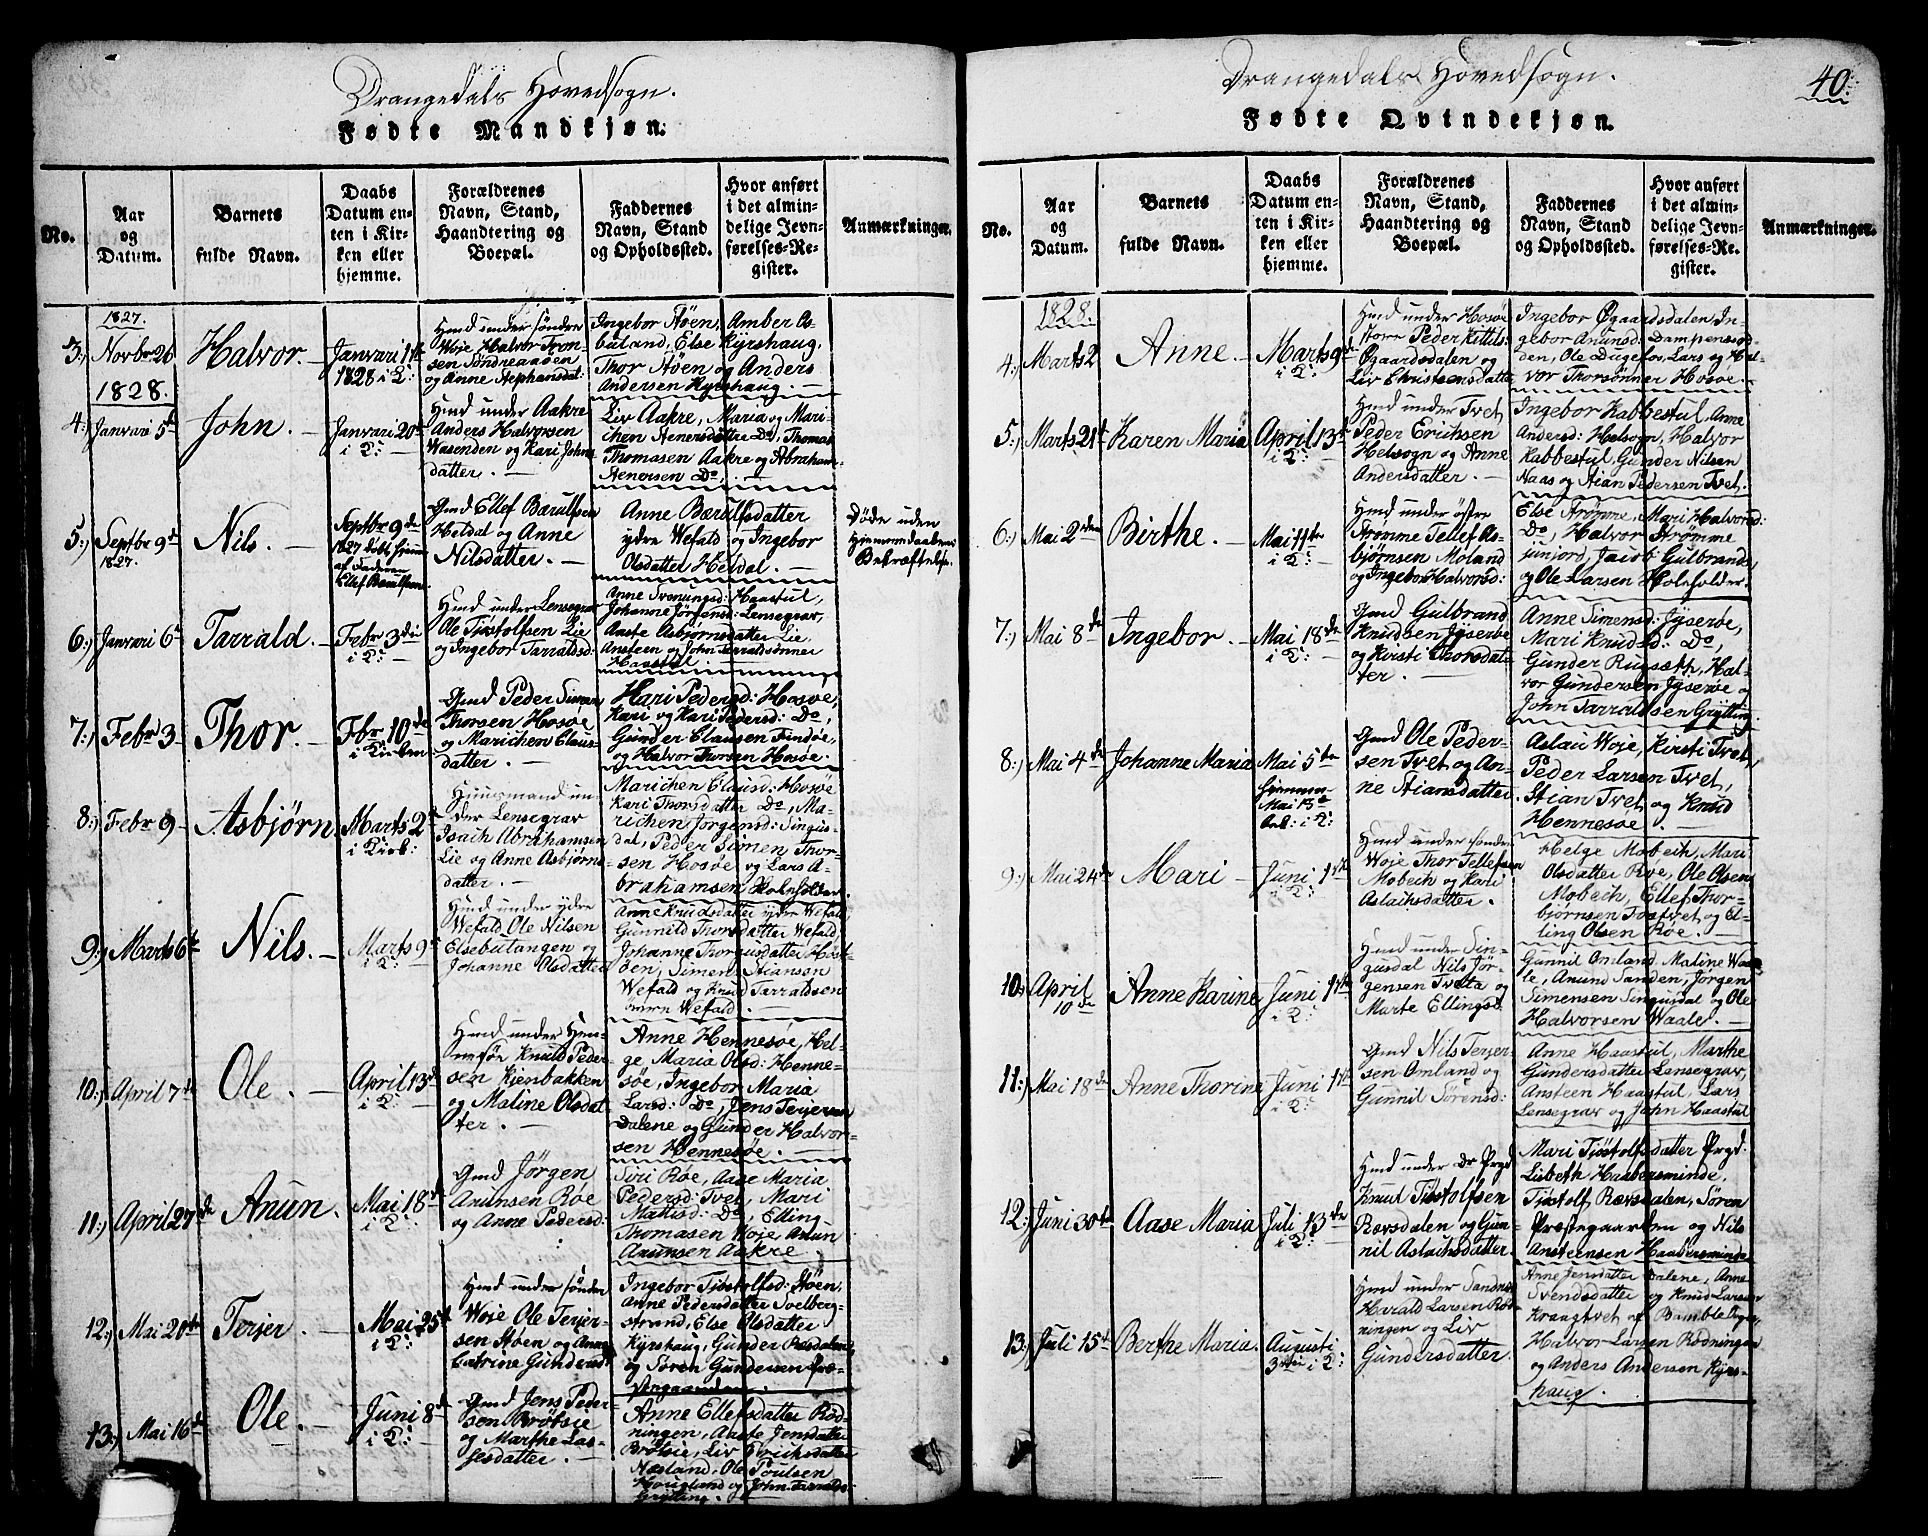 Drangedals Hovedsogn.
Fødte Mandkjøn.
No.
Aar
og
Datum.
Barnets
fulde Navn.
Daabs
Datum en-
ten i Kir-
ken eller
hjemme.
Forældrenes
Navn, Stand,
Haandtering og
Boepæl.
Faddernes
Navn, Stand
og Opholdssted.
Hvor anført
i det almin-
delige Jevn-
førelses-Re-
gister.
Anmærkninger.
1827.
3:) Novbr 26
Halvor.
Janvari
1828 i K:
Hmd under søndre
Woje Halvor Tron-
sen Søndreaasen
og Anne Stephansdat:
Ingebor Støen, Amber As-
beland, Else Kyrshaug,
Thor Støen og Anders
Andersen Kyrshaug.
1828.
4:) Janvari 5te
John.
Janvari 20de
i K:
Hmd under Aakre
Anders Halvorsen
Wasenden og Kari Johns
datter.
Liv Aakre, Maria og Mari-
chen Stenersdatter Do, Thomas
Thomasen Aakre og Abraham
Stenersen Do.
5:) Septbr 9de
1827.
Nils.
Septbr 9de
1827 døbt hiem
af Faderen
Ellef Barulfsen
Gmd Ellef Barulfsen
Heldal og Anne
Nilsdatter.
Anne Bærulfsdatter
ydre Wefald og Ingebor
Olsdatter Heldal.
Døde uden
Hiemmedaabens
Bekræftelse.
6:) Janvari 6te
Tarrald.
Febr 3die
i K:
Hmd under Lensegrav
Ole Tiøstolfsen Lie
og Ingebor Tarraldsd:
Anne Haastul,
Johanne Jørgensd: Lensegrav,
Anste Asbjørnsdatter Lie
Ansteen og John Tarraldsønner
Haastul.
7:) Febr 3
Thor.
Fbr 10de
i Kirken
Gmd Peder Simen
Thorsen Hosøe
og Marichen Claus-
datter.
Mari Pedersd: Hosøe,
Kari og Kari Pedersd: Do,
Gunder Clausen Findøe,
og Halvor Thorsen Hosøe.
8:) Febr 9
Asbjørn.
Marts 2den
i Kirk:
Huusmand un-
der Lensegrav
Isach Abrahamsen
Lie og Anne Asbjørns-
datter.
Marichen Clausd: Hosøe
Kari Thorsdatter Do, Ma-
richen Jørgensd: Singus-
dal, Peder Simen Thor-
sen Hosøe og Lars A-
brahamsen Holefolder.
9:) Marts 6te
Nils.
Marts 9de
i K:
Hmd under ydre
Wefald Ole Nilsen
Elsebutangen og
Johanne Olsdatter
Anne Knudsdatter ydre Wefald,
Gunnild Thorsdatter Wefald,
Johanne Thorgusdatter Høst-
øen, Simen Stiansen
Wefald og Knud Tarraldsen
Wefald.
10:) April 7de
Ole.
April 13de
i K:
Hmd under Hen-
nesøe Knud Peder-
sen Kjenbakken
og Maline Olsdat-
ter.
Anne Hennesøe, Hel-
ge Maria Olsd: Henne-
søe, Ingebor Maria
Larsd: Do, Jens Terjersen
Dalene og Gunder Halvor-
sen Hennesøe.
11:) April 27de
Anun.
Mai 18de
i K:
Gmd Jørgen
Anunsen Roe
og Anne Pedersd:
Siri Røe, Aase Maria
Pedersd: Tvet, Mari
Mattisd: Do, Elling
Thomasen Woje Anun
Anunsen Aakre.
12:) Mai 20de
Terjer.
Mai 25de
i K:
Hmd under søndre
Woje Ole Terjer-
sen Støen og Anne
Catrine Gundersd:
Ingebor Tiøstolfsd: Støen,
Anne Pedersdatter Svelberg-
strand, Else Olsdatter
Kyrshaug, Gunder Røsdalen
og Søren Gundersen Præ-
stegaarden.
13:) Mai 16de
Ole
Juni 8de
i K:
Gmd Jens Peder-
sen Brøtsie
og Marthe Las-
sesdatter.
Anne Ellefsdatter Rød-
ningen, Aaste Jensdatter
Brøtsie, Liv Erichsdatter
Næsland, Ole Poulsen
Hougland og John Tarralds-
Grytting.
Drangedals Hovedsogn.
40.
Fødte Qvindekjøn.
No.
Aar
og
Datum.
Barnets
fulde Navn.
Daabs
Datum en-
ten i Kir-
ken eller
hjemme.
Forældrenes
Navn, Stand,
Haandtering og
Boepæl.
Faddernes
Navn, Stand
og Opholdssted.
Hvor anført
i det almin-
delige Jevn-
førelses-Re-
gister.
Anmærkninger.
1828.
4:) Marts 2
Anne.
Marts 9de
i K:
Hmd under Hosøe
store Peder Kittils
Øgaardsdalen og
Liv Christensdatter
Ingebor Øgaardsdalen In-
gebor Anunsd: Dampenesod-
den, Ole Dugefos, Lars og Hal-
vor Thorsønner Hosøe.
5:) Marts 21de
Karen Maria
April 13de
i K:
Hmd under Tvet
Peder Erichsen
Helsogn og Anne
Andersdatter.
Ingebor Kabbestul, Anne
Andersd: Helsogn, Halvor
Kabbestul, Gunder Nilsen
Naas og Stian Pedersen Tvet.
6:) Mai 2den
Birthe.
Mai 11te
i K:
Hmd under østre
Strømme Tellef As-
bjørnsen Moland
og Ingebor Halvorsd:
Else Strømme, Mari Halvorsd:
Do, Halvor Strømme
Sunjord, Jacob Gulbrands:
og Ole Larsen Holefolder.
7:) Mai 8de
Ingebor.
Mai 18de
i K:
Gmd Gulbrand
Knudsen Jyserøe
og Kirsti Thorsdat-
ter.
Anne Simensd: Jyserøe,
Mari Knudsd: Do,
Gunder Rugsæth, Hal-
vor Gundersen Jyserøe og
John Tarraldsen Grytting.
8:) Mai 4de
Johanne Maria
Mai 5te
hiemme
Mai 15de
i K:
Gmd Ole Peder-
sen Tvet og An-
ne Stiansdatter.
Aslau Woje, Kirsti Tvet,
Peder Larsen Tvet,
Stian Tvet og Knud
Hennesøe.
9:) Mai 24de
Mari
Juni 1ste
i K:
Hmd under søndre
Woje Thor Tellefsen
Mobech og Kari
Aslachsdatter.
Helge Mobech, Mari
Olsdatter Roe, Ole Olsen
Mobech, Ellef Thor-
bjørnsen Tostvet og El-
ling Olsen Røe.
10:) April
10de
Anne Karine
Juni 1ste
i K:
Hmd under Sin-
gusdal Nils Jør-
gensen Tveta og
Marte Ellingsd:
Gunnil Omland Maline Waa-
le, Anund Sanden, Jørgen
Simensen Singusdal og Ole
Halvorsen Waale.
11:) Mai 18de
Anne Thorine
Juni 1ste
i K:
Gmd Nils Terjer-
sen Omland og
Gunnil Sørensd:
Anne Haastul, Marthe
Gundersdatter Lensegrav,
Ansteen Haastul, Lars
Lensegrav og John Haastul
12:) Juni 30te
Aase Maria
Juli 13de
i K:
Hmd under Dr Prgd
Knut Tiøstolfsen
Rævsdalen og Gun-
nil Aslachsdatter.
Mari Tiøstolfsdatter Prgd:
Lisbeth Haabersminde,
Tiøstolf Rævsdalen, Søren
Præstegaarden og Nils
Ansteensen Haabersminde
13:) Juli 15de
Berthe Maria.
Augusti
3die i K:
Hmd under Sandnes
Harald Larsen Rød-
ningen og Liv
Gundersdatter.
Anne Jensdatter Dalene, Anne
Svendsdatter og Knud Larsen
Krangtvet af Bamble
Halvor Larsen Rødningen
og Anders Andersen Kyrs-
haug.